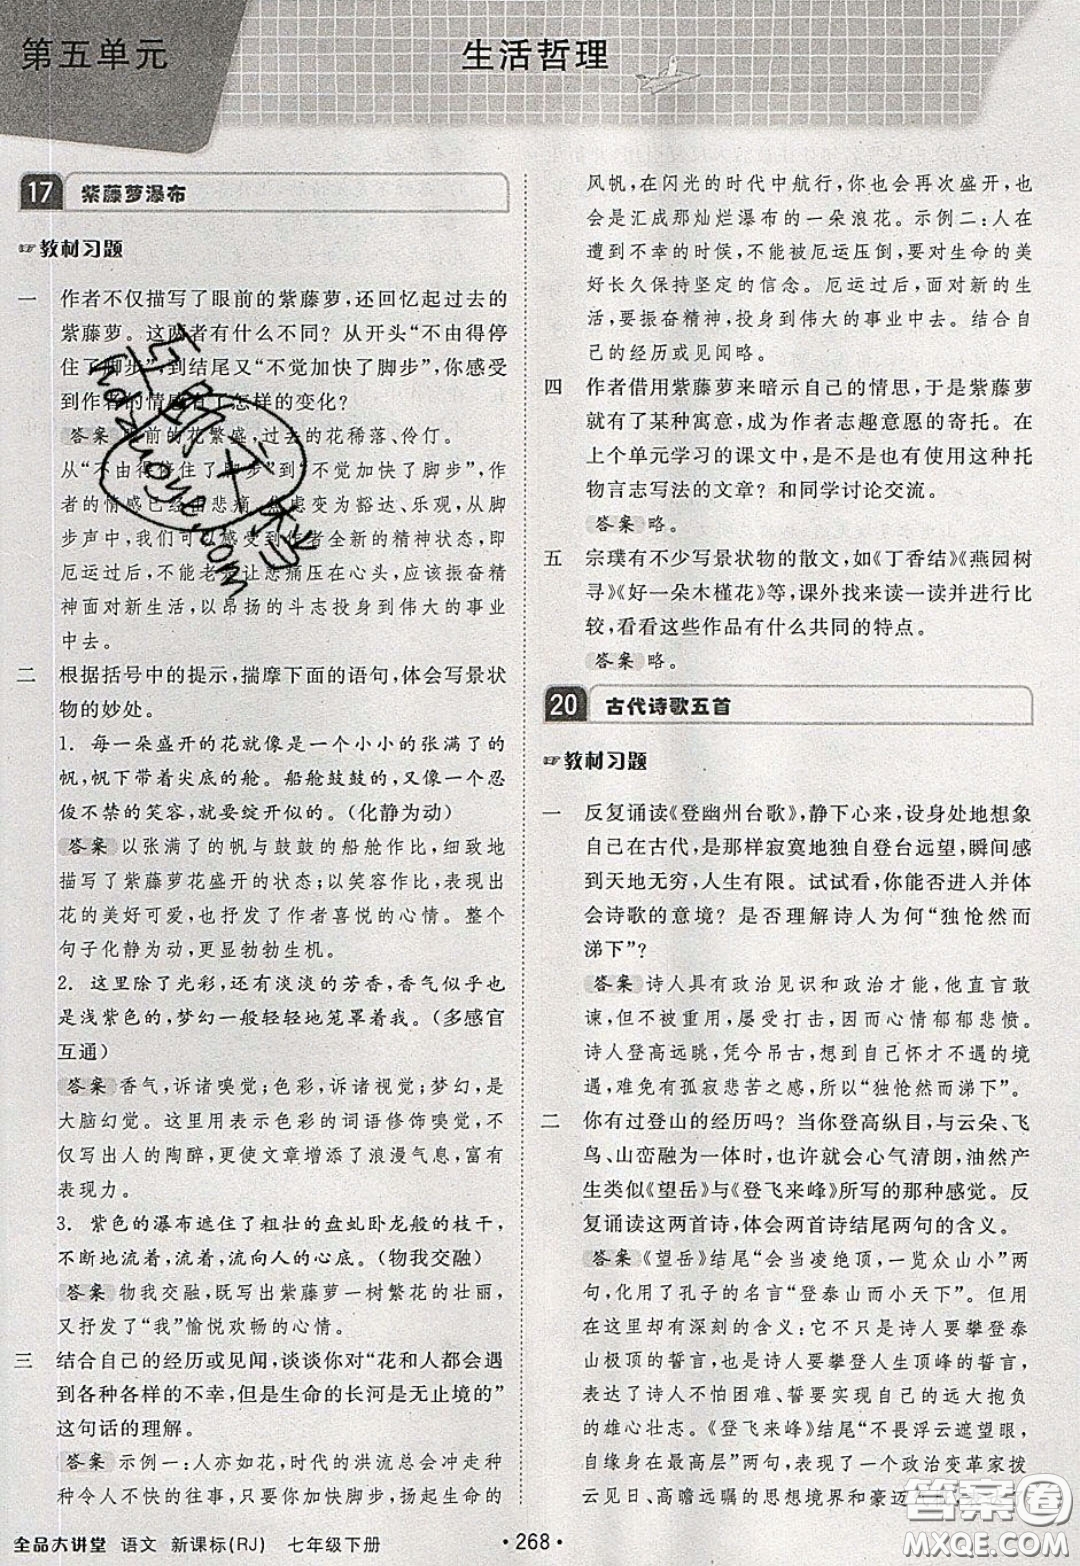 第五单元
生活哲理
17 紫藤萝瀑布
☞教材习题
一 作者不仅描写了眼前的紫藤萝,还回忆起过去的
紫藤萝。这两者有什么不同?从开头“不由得停
住了脚步”,到结尾又“不觉加快了脚步”,你感受
到作者的情感有了怎样的变化?
答案 眼前的花繁盛,过去的花稀落、伶仃。
从“不由得停住了脚步”到“不觉加快了脚步”,作
者的情感已经由悲痛、焦虑变为豁达、乐观,从脚
步声中,我们可以感受到作者全新的精神状态,即
厄运过后,不能老是让悲痛压在心头,应该振奋精
神面对新生活,以昂扬的斗志投身到伟大的事业
中去。
二 根据括号中的提示,揣摩下面的语句,体会写景状
物的妙处。
1. 每一朵盛开的花就像是一个小小的张满了的
帆,帆下带着尖底的舱。船舱鼓鼓的,又像一个忍
俊不禁的笑容,就要绽开似的。(化静为动)
答案 以张满了的帆与鼓鼓的船舱作比,细致地
描写了紫藤萝花盛开的状态;以笑容作比,表现出
花的美好可爱,也抒发了作者喜悦的心情。整个
句子化静为动,更显勃勃生机。
2. 这里除了光彩,还有淡淡的芳香,香气似乎也
是浅紫色的,梦幻一般轻轻地笼罩着我。(多感官
互通)
答案 香气,诉诸嗅觉;色彩,诉诸视觉;梦幻,是
大脑幻觉。这里用表示色彩的词语修饰嗅觉,不
仅写出人的陶醉,更使文章增添了浪漫气息,富有
表现力。
3. 紫色的瀑布遮住了粗壮的盘虬卧龙般的枝干,
不断地流着,流着,流向人的心底。(物我交融)
答案 物我交融,既写出紫藤萝一树繁花的壮丽,
又抒发了“我”愉悦欢畅的心情。
三 结合自己的经历或见闻,谈谈你对“花和人都会遇
到各种各样的不幸,但是生命的长河是无止境的”
这句话的理解。
答案 示例一:人亦如花,时代的洪流总会冲走种
种令人不快的往事,我们要加快脚步,扬起生命的
风帆,在闪光的时代中航行,你也会再次盛开,你
也会是汇成那灿烂瀑布的一朵浪花。示例二:人在
遭到不幸的时候,不能被厄运压倒,要对生命的美
好长久保持坚定的信念。厄运过后,面对新的生
活,要振奋精神,投身到伟大的事业中去。结合自
己的经历或见闻略。
四 作者借用紫藤萝来暗示自己的情思,于是紫藤萝
就有了某种寓意,成为作者志趣意愿的寄托。在
上个单元学习的课文中,是不是也有使用这种托
物言志写法的文章?和同学讨论交流。
答案 略。
五 宗璞有不少写景状物的散文,如《丁香结》《燕园树
寻》《好一朵木槿花》等,课外找来读一读并进行比
较,看看这些作品有什么共同的特点。
答案 略。
20 古代诗歌五首
☞教材习题
一 反复诵读《登幽州台歌》,静下心来,设身处地想象
自己在古代,是那样寂寞地独自登台远望,瞬间感
到天地无穷,人生有限。试试看,你能否进入并体
会诗歌的意境?是否理解诗人为何“独怆然而
涕下”?
答案 诗人具有政治见识和政治才能,他直言敢
谏,但不被重用,屡受打击,因而心情郁郁悲愤。
诗人登高远眺,凭今吊古,想到自己怀才不遇的境
遇,难免有孤寂悲苦之感,所以“独怆然而涕下”。
二 你有过登山的经历吗?当你登高纵目,与云朵、飞
鸟、山峦融为一体时,也许就会心气清朗,油然而
产生类似《望岳》《登飞来峰》所写的那种感觉。反
复诵读这两首诗,体会两首诗结尾两句的含义。
答案 《望岳》结尾“会当凌绝顶,一览众山小”两
句,化用了孔子的名言“登泰山而小天下”。但用
在这里却有深刻的含义:它不只是诗人要攀登泰
山极顶的誓言,也是诗人要攀登人生顶峰的誓言,
表达了诗人不怕困难、誓要实现自己的远大抱负
的雄心壮志。《登飞来峰》结尾“不畏浮云遮望眼,
自缘身在最高层”两句,表现了一个政治变革家拨
云见日、高瞻远瞩的思想境界和豪迈
全品大讲堂 语文 新课标(RJ) 七年级下册
·268·
答案圈